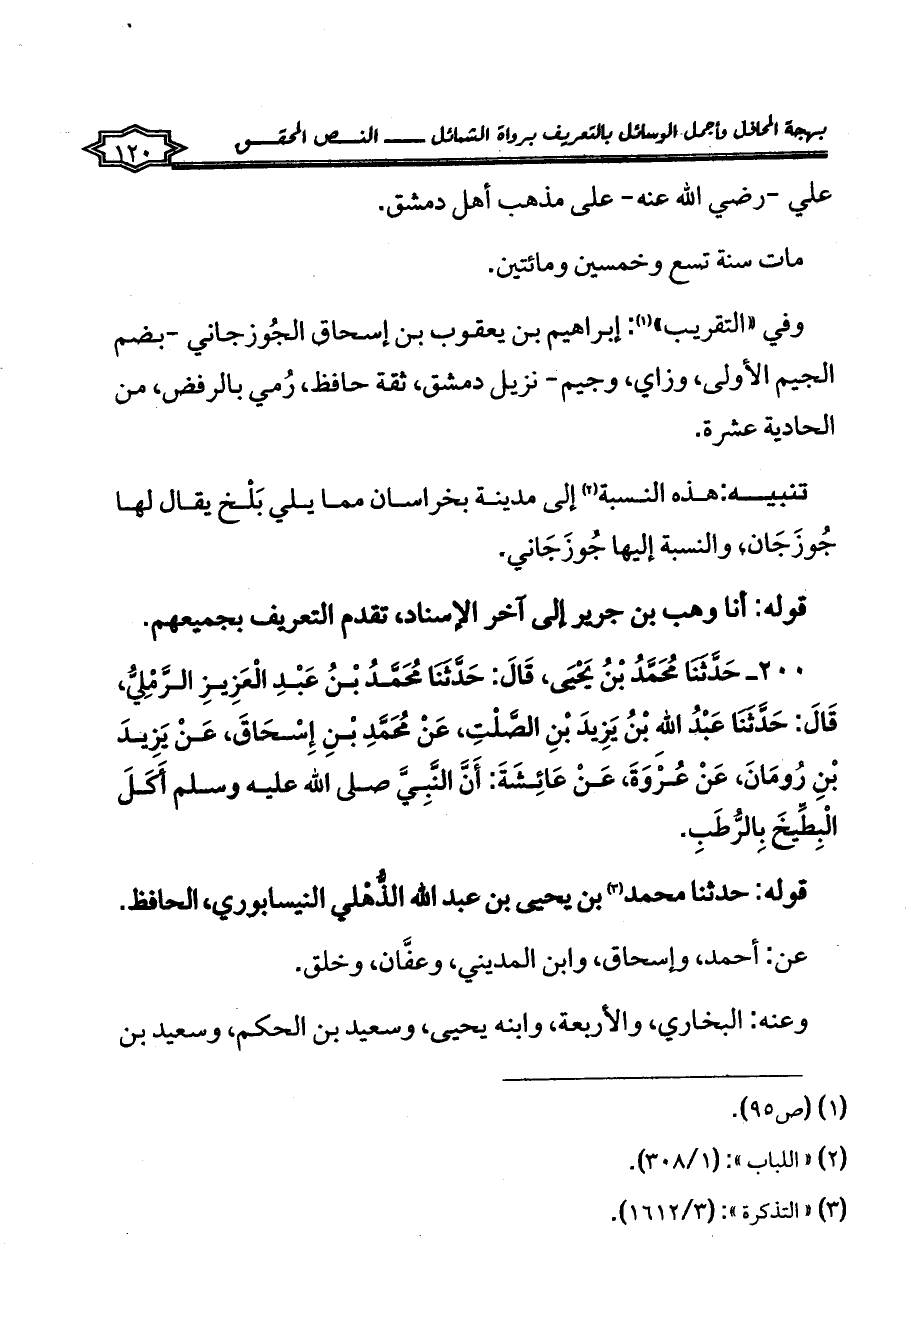 بهجة المحافل وأجمل الوسائل بالتعريف برواة الشمائل ـــ النـــص المحقـــق
١٢٠
علي -رضي الله عنه- على مذهب أهل دمشق.
مات سنة تسع وخمسين ومائتين.
وفي «التقريب»(١): إبراهيم بن يعقوب بن إسحاق الجُوزجاني -بضم
الجيم الأولى، وزاي، وجيم- نزيل دمشق، ثقة حافظ، رُمي بالرفض، من
الحادية عشرة.
تنبيـــه: هـذه النسبة(٢) إلى مدينة بخراسان مما يلي بَلْخ يقال لها
جُوزَجَان، والنسبة إليها جُوزَجَاني.
قوله: أنا وهب بن جرير إلى آخر الإسناد، تقدم التعريف بجميعهم.
٢٠٠ـ حَدَّثَنَا مُحَمَّدُ بْنُ يَحْيَى، قَالَ: حَدَّثَنَا مُحَمَّدُ بْنُ عَبْدِ الْعَزِيزِ الرَّمْلِيُّ،
قَالَ: حَدَّثَنَا عَبْدُ الله بْنُ يَزِيدَ بْنِ الصَّلْتِ، عَنْ مُحَمَّدِ بْنِ إِسْحَاقَ، عَنْ يَزِيدَ
بْنِ رُومَانَ، عَنْ عُرْوَةَ، عَنْ عَائِشَةَ: أَنَّ النَّبِيَّ صلى الله عليه وسلم أَكَلَ
الْبِطِّيخَ بِالرُّطَبِ.
قوله: حدثنا محمد(٣) بن يحيى بن عبد الله الذُّهْلي النيسابوري، الحافظ.
عن: أحمد، وإسحاق، وابن المديني، وعفَّان، وخلق.
وعنه: البخاري، والأربعة، وابنه يحيى، وسعيد بن الحكم، وسعيد بن
(١) (ص٩٥).
(٢) «اللباب»: (٣٠٨/١).
(٣) «التذكرة»: (١٦١٢/٣).